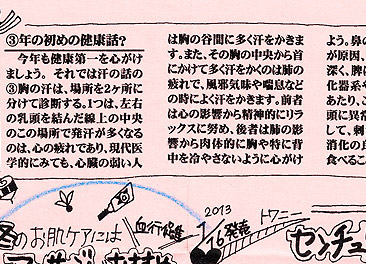 ③年の初めの健康話?
今年も健康第一を心がけ
ましょう。それでは汗の話の
③胸の汗は、場所を2ヶ所に
分けて診断する。1つは、左右
の乳頭を結んだ線上の中央
のこの場所で発汗が多くなる
のは、心の疲れであり、現代医
学的にみても、心臓の弱い人
は胸の谷間に多く汗をかきま
す。また、その胸の中央から首
にかけて多く汗をかくのは肺の
疲れで、風邪気味や喘息など
の時によく汗をかきます。前者
は心の影響から精神的にリラ
ックスに努め、後者は肺の影
響から肉体的に胸や特に背
中を冷やさないように心がけ
よう。鼻の
が原因、
深く、脾に
化器系や
あたり、こ
頭に異常
して、刺
消化の良
食べるこ
冬のお肌ケアには
血行促進
2013
1/16発売
トワニー
センチュリ